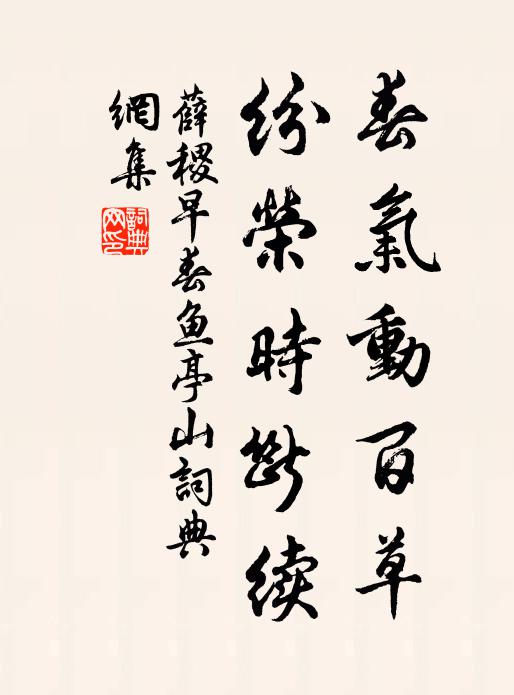 春氣動百草
紛榮時斷续
薛稷早春魚亭山詞典
網集
詞典
网印